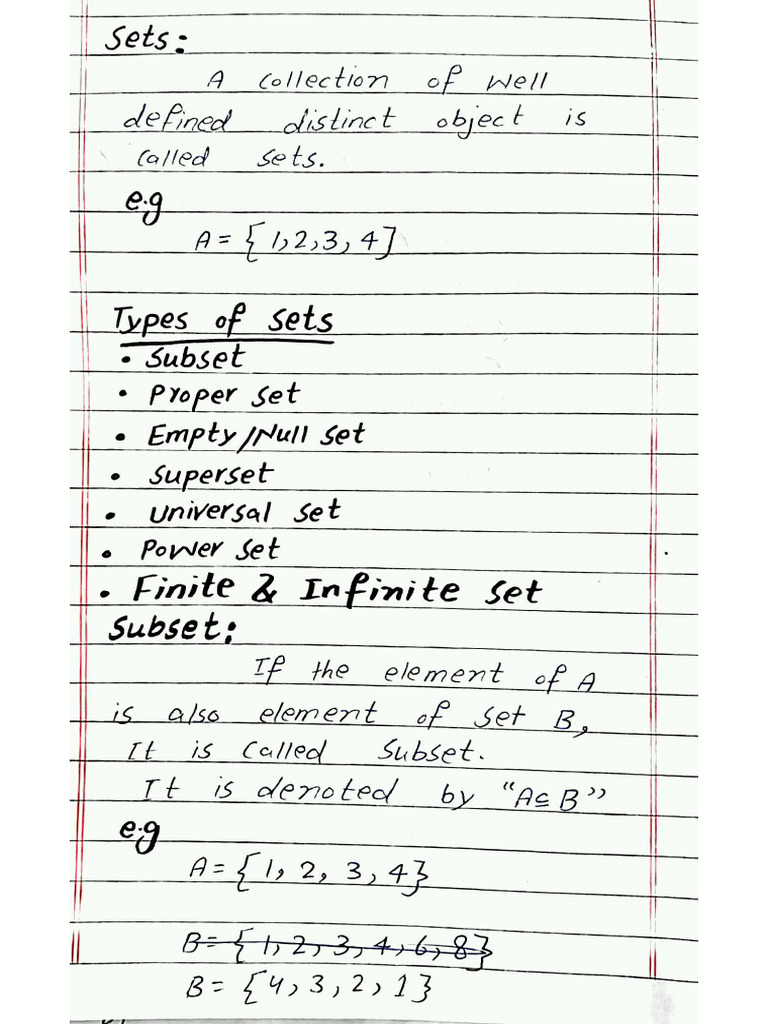 Sets:
A collection of well
defined distinct object is
called sets.
e.g
A = { 1,2,3,4]
Types of sets
• Subset
• Proper set
• Empty/Null set
• Superset
• Universal set
• Power set
• Finite & Infinite set
Subset:
If the element of A
is also element of set B,
It is called subset.
It is denoted by “A⊆B”
e.g
A = {1, 2, 3, 4}
B = { 1, 2, 3, 4, 6, 8}
B = {4, 3, 2, 1}